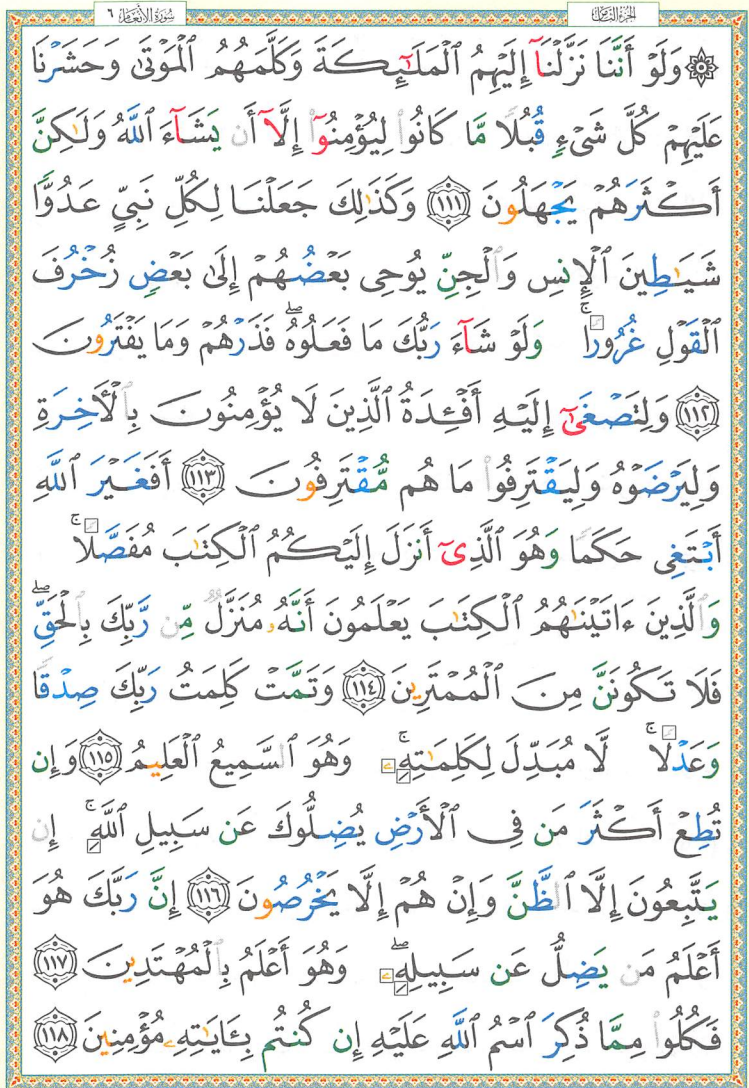 سُورَةُ الأَنْعَامِ ٦
الجُزْءُ الثَّامِنُ
۞ وَلَوْ أَنَّنَا نَزَّلْنَآ إِلَيْهِمُ ٱلْمَلَـٰٓئِكَةَ وَكَلَّمَهُمُ ٱلْمَوْتَىٰ وَحَشَرْنَا
عَلَيْهِمْ كُلَّ شَىْءٍ قُبُلًا مَّا كَانُوا۟ لِيُؤْمِنُوٓا۟ إِلَّآ أَن يَشَآءَ ٱللَّهُ وَلَـٰكِنَّ
أَكْثَرَهُمْ يَجْهَلُونَ ١١١ وَكَذَٰلِكَ جَعَلْنَا لِكُلِّ نَبِىٍّ عَدُوًّا
شَيَـٰطِينَ ٱلْإِنسِ وَٱلْجِنِّ يُوحِى بَعْضُهُمْ إِلَىٰ بَعْضٍ زُخْرُفَ
ٱلْقَوْلِ غُرُورًا ۚ وَلَوْ شَآءَ رَبُّكَ مَا فَعَلُوهُ ۖ فَذَرْهُمْ وَمَا يَفْتَرُونَ
١١٢ وَلِتَصْغَىٰٓ إِلَيْهِ أَفْـِٔدَةُ ٱلَّذِينَ لَا يُؤْمِنُونَ بِٱلْـَٔاخِرَةِ
وَلِيَرْضَوْهُ وَلِيَقْتَرِفُوا۟ مَا هُم مُّقْتَرِفُونَ ١١٣ أَفَغَيْرَ ٱللَّهِ
أَبْتَغِى حَكَمًا وَهُوَ ٱلَّذِىٓ أَنزَلَ إِلَيْكُمُ ٱلْكِتَـٰبَ مُفَصَّلًا ۚ
وَٱلَّذِينَ ءَاتَيْنَـٰهُمُ ٱلْكِتَـٰبَ يَعْلَمُونَ أَنَّهُۥ مُنَزَّلٌ مِّن رَّبِّكَ بِٱلْحَقِّ ۖ
فَلَا تَكُونَنَّ مِنَ ٱلْمُمْتَرِينَ ١١٤ وَتَمَّتْ كَلِمَتُ رَبِّكَ صِدْقًا
وَعَدْلًا ۚ لَّا مُبَدِّلَ لِكَلِمَـٰتِهِۦ ۚ وَهُوَ ٱلسَّمِيعُ ٱلْعَلِيمُ ١١٥ وَإِن
تُطِعْ أَكْثَرَ مَن فِى ٱلْأَرْضِ يُضِلُّوكَ عَن سَبِيلِ ٱللَّهِ ۚ إِن
يَتَّبِعُونَ إِلَّا ٱلظَّنَّ وَإِنْ هُمْ إِلَّا يَخْرُصُونَ ١١٦ إِنَّ رَبَّكَ هُوَ
أَعْلَمُ مَن يَضِلُّ عَن سَبِيلِهِۦ ۖ وَهُوَ أَعْلَمُ بِٱلْمُهْتَدِينَ ١١٧
فَكُلُوا۟ مِمَّا ذُكِرَ ٱسْمُ ٱللَّهِ عَلَيْهِ إِن كُنتُم بِـَٔايَـٰتِهِۦ مُؤْمِنِينَ ١١٨